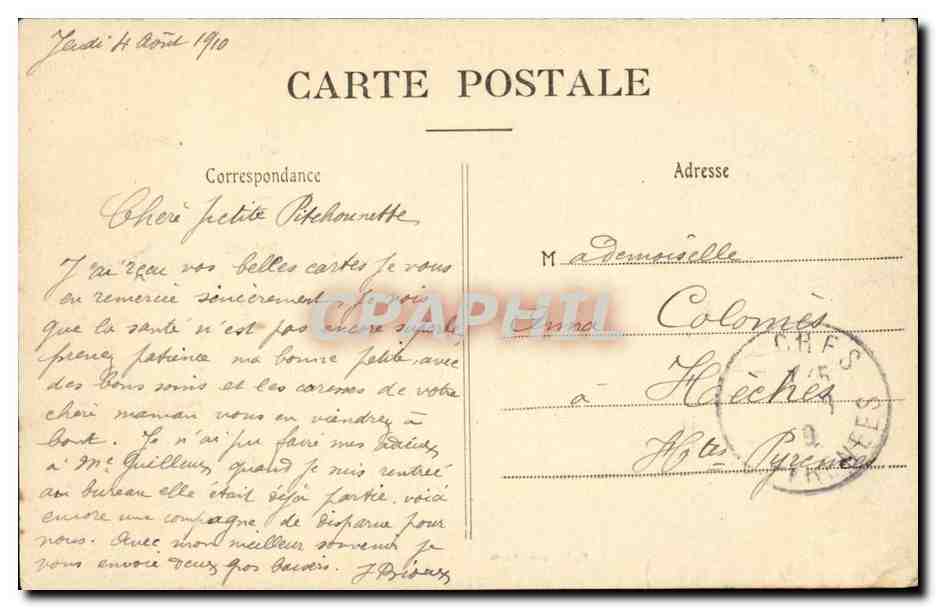 Jeudi 4 Août 1910
CARTE POSTALE
Correspondance
Adresse
Cheré petite Pitchounette
J'ai reçu vos belles cartes je vous
en remercie sincèrement, je vois
que la santé n'est pas encore superbe
prenez patience ma bonne petite, avec
des bons soins et les caresses de votre
chéré maman vous en viendrez à
bout. Je n'ai pu faire mes adieux
à Me Guilleux quand je suis rentrée
au bureau elle était déjà partie. voici
encore une compagne de disparue pour
nous. Avec mon meilleur souvenir je
vous envoie deux gros baisers.
Mademoiselle
Anna Colomès
à Hèches
Htes Pyrénées
CPAPHIL